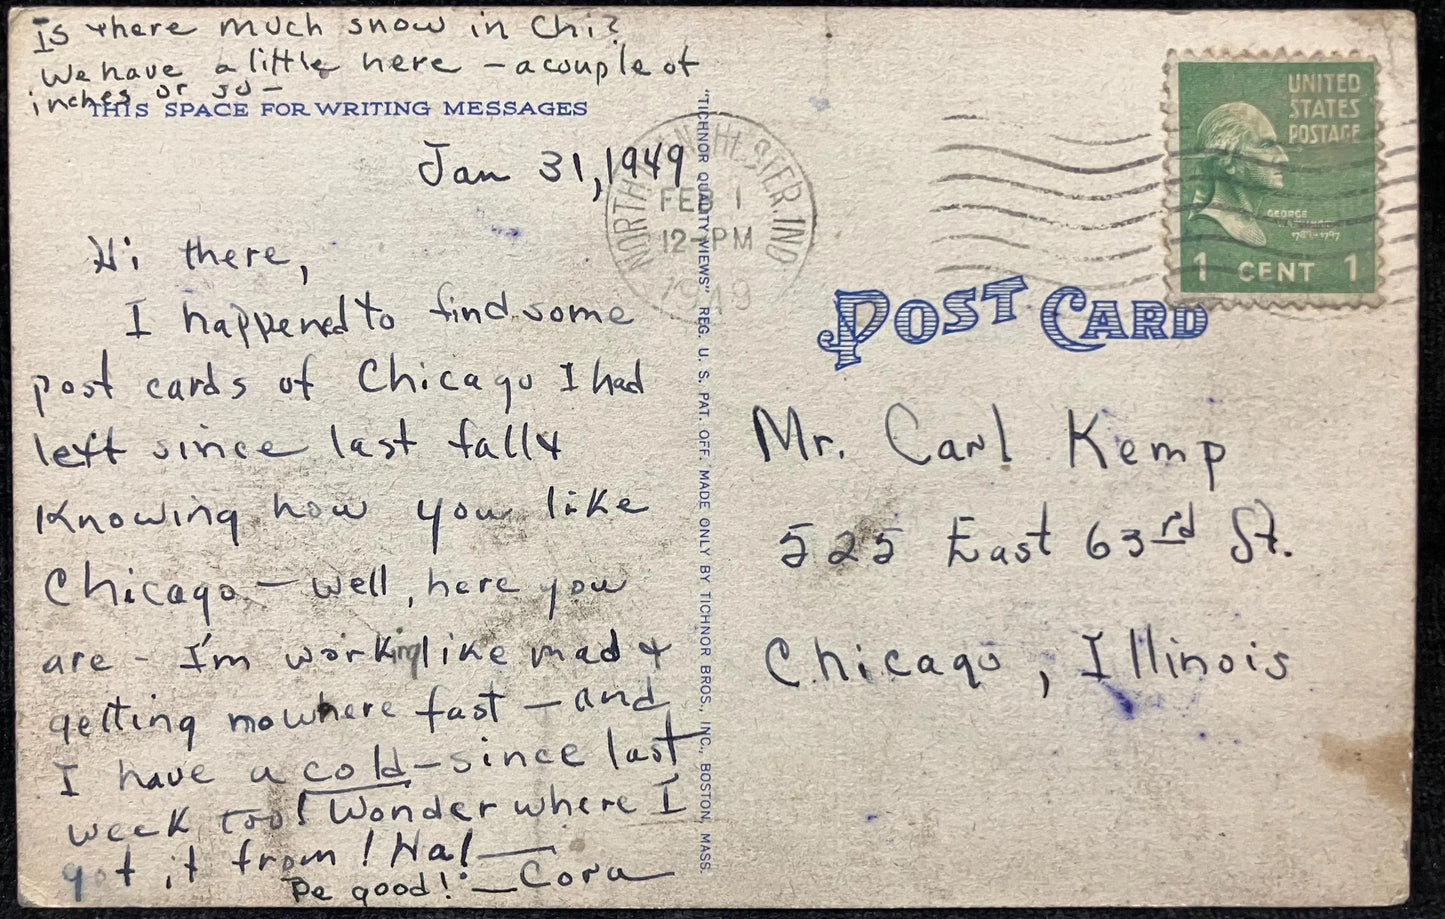 Is there much snow in Chi?
We have a little here – a couple of
inches or so –
THIS SPACE FOR WRITING MESSAGES
Jan 31, 1949
Hi there,
I happened to find some
post cards of Chicago I had
left since last fall &
Knowing how you like
Chicago – well, here you
are – I'm working like mad &
getting nowhere fast – and
I have a cold – since last
week too! Wonder where I
got it from! Ha! —
Be good! — Cora
"TICHNOR QUALITY VIEWS" REG. U. S. PAT. OFF. MADE ONLY BY TICHNOR BROS., INC., BOSTON, MASS.
NORTH MANCHESTER, IND.
FEB 1
12-PM
1949
UNITED
STATES
POSTAGE
GEORGE
WASHINGTON
1789-1797
1 CENT 1
POST CARD
Mr. Carl Kemp
525 East 63rd St.
Chicago, Illinois